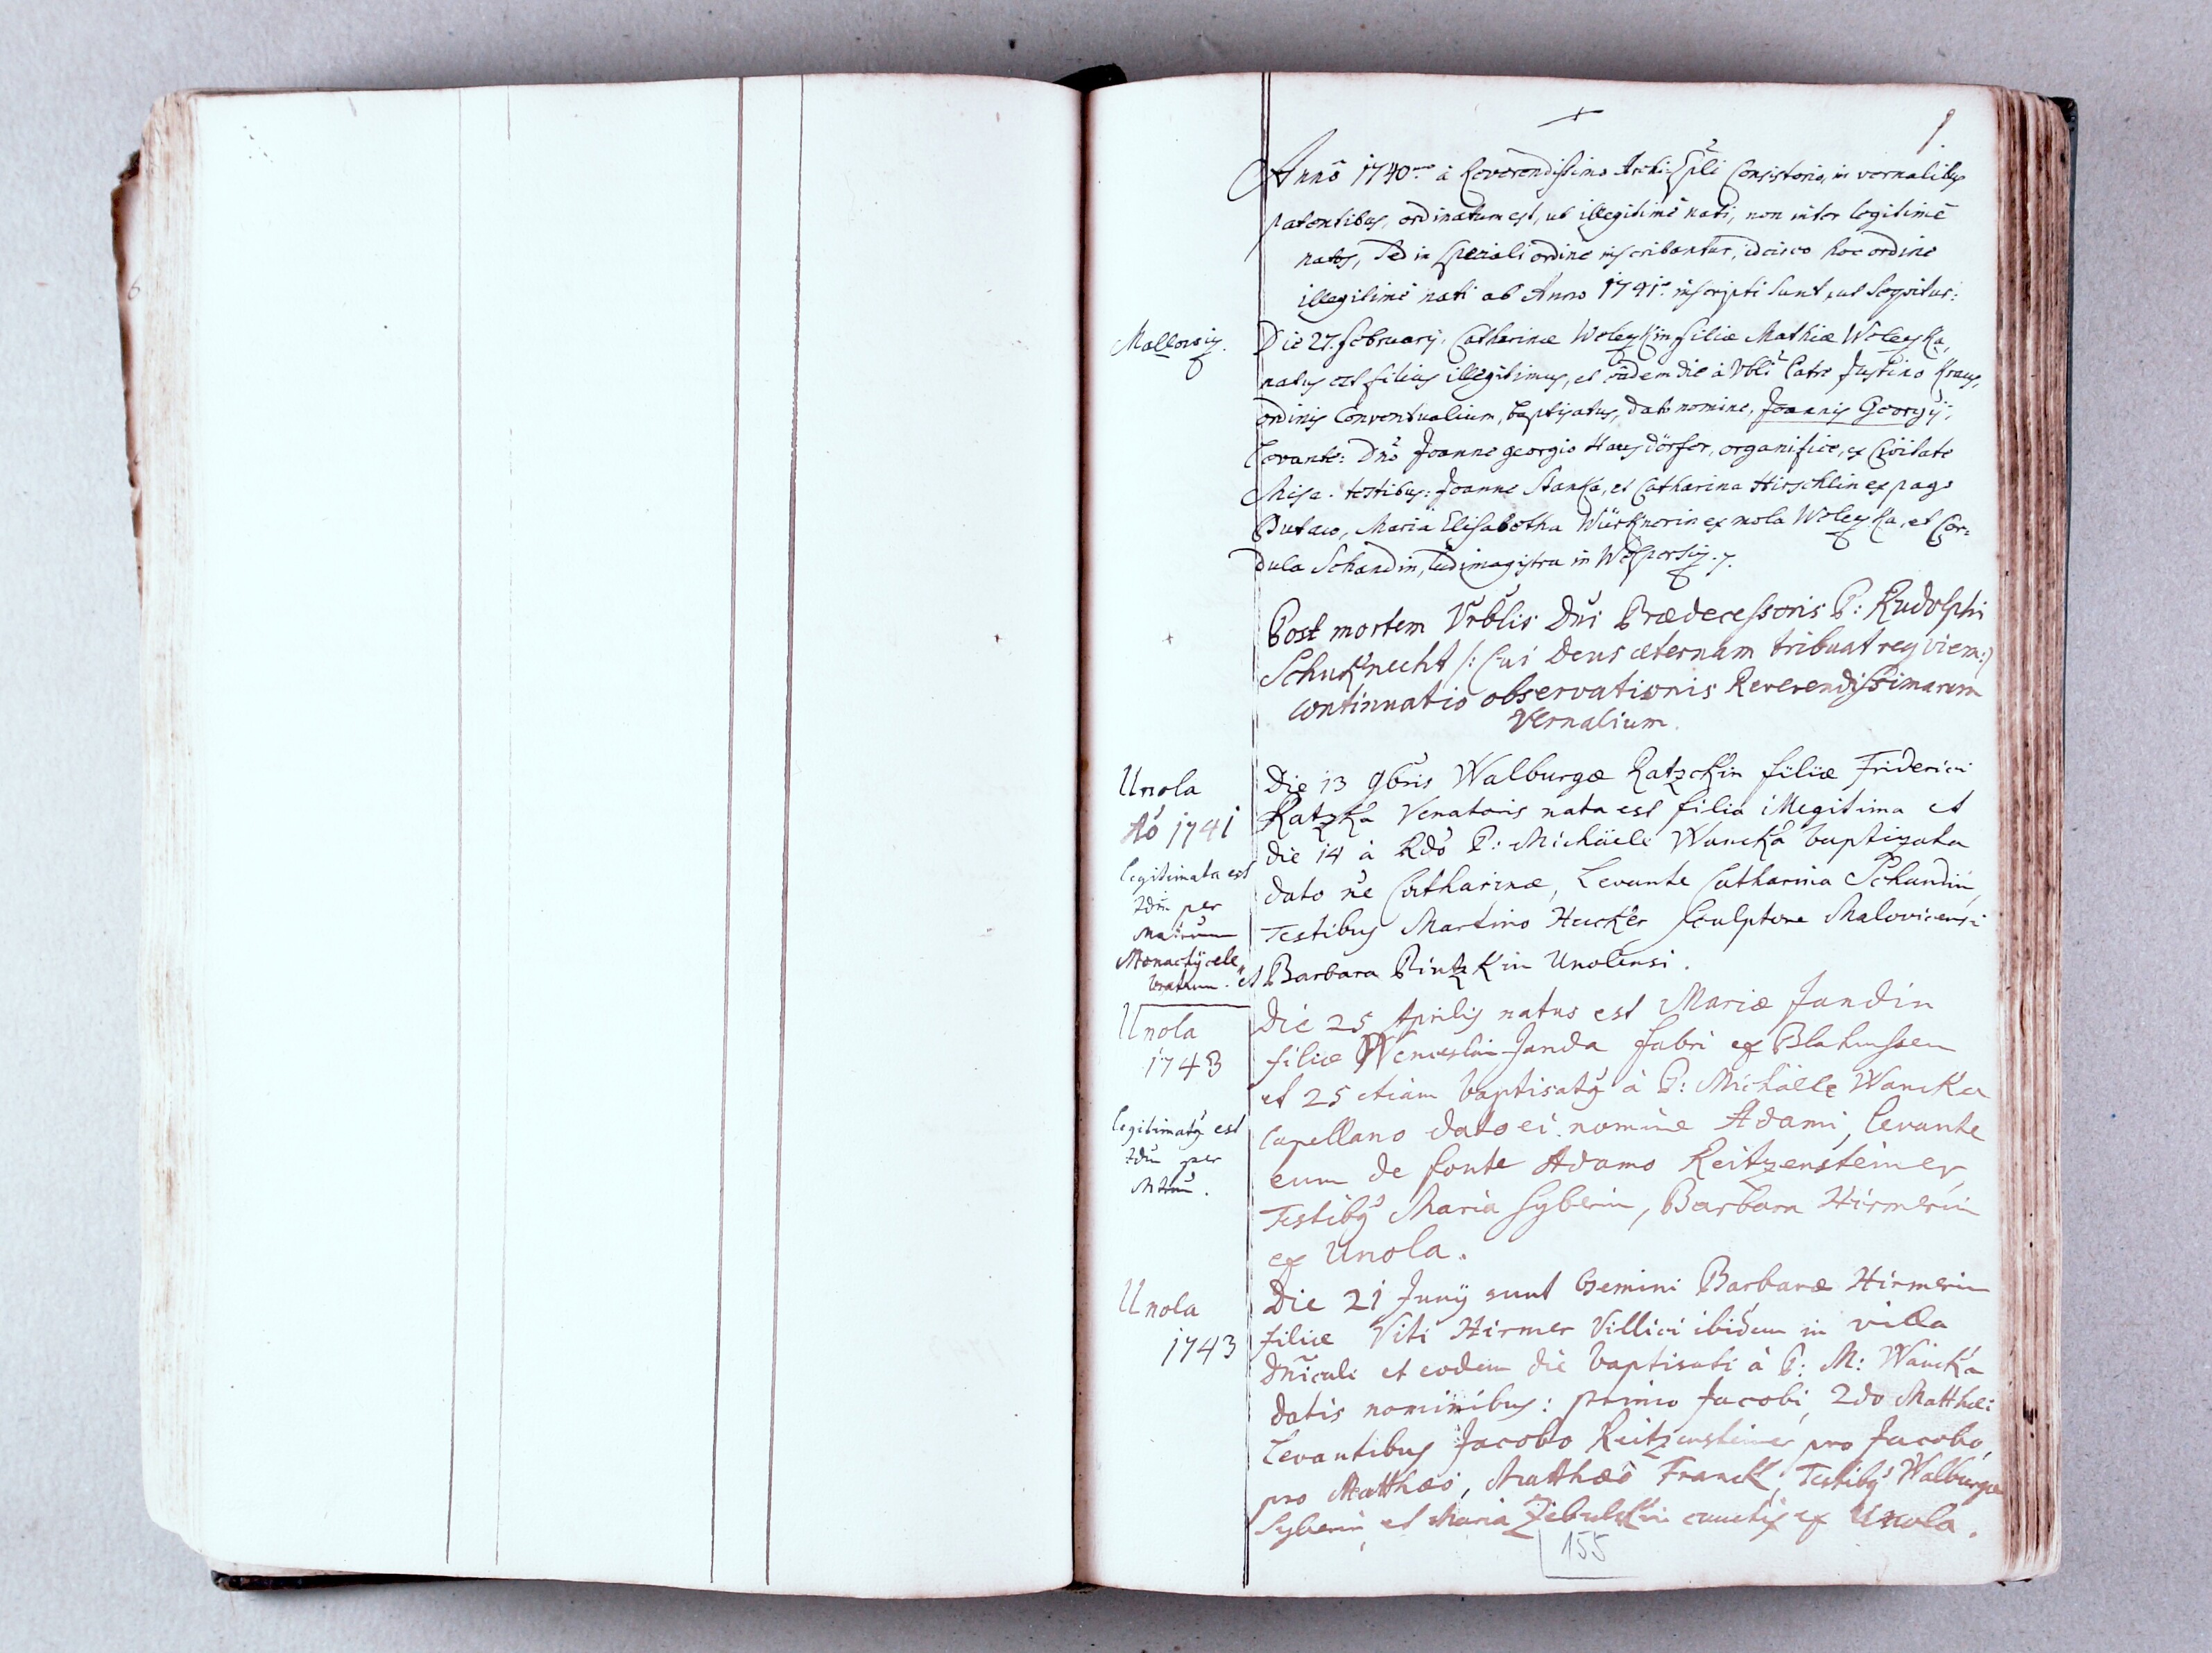 1.
Anno 1740mo à Reverendissimo Archi-Eppli Consistorio, in vernalibus
patentibus, ordinatum est, ut illegitimè nati, non inter legitimè
natos, sed in speciali ordine inscribantur, idcirco hoc ordine
illegitimè nati ab Anno 1741o inscripti sunt, ut sequitur:
Mallowiz.
Die 27. february. Catharinae Woleyzkin filiae Mathiae Woleyzka,
natus est filius illegitimus, et eâdem die à Vbli Patre Justino Kraus,
ordinis Conventualium, baptisatus, dato nomine, Joannis Georgij,
Levante: Dno Joanne georgio Hausdörfer, organifice, ex Civitate
Misa. testibus: Joanne Stanka, et Catharina Hirschlin ex pago
Butaw, Maria Elisabetha Würknerin ex mola Woleyzka, et Cor=
dula Schandin, Ludimagistra in Welpersiz.
Post mortem Vrblis Dni Praedecessoris P: Rudolphi
Schuknecht /: Cui Deus aeternam tribuat requiem:/
continuatio observationis Reverendissimarum
Vernalium.
Unola
Aô 1741
legitimata est
per
Matrim
Monachij cele
bratum.
Die 13 9bris Walburgae Ratzckin filiae Friderici
Ratzka Venatoris nata est filia illegitima et
die 14 à Rdo P: Michäele Wancka baptizata
dato ne Catharinae, Levante Catharina Schandin,
Testibus Martino Hucker Sculptore Malovicensi
et Barbara Pintzkin Unolensi.
Unola
1743
legitimatus est
per
Mtrm.
Die 25 Aprilis natus est Mariae Jandin
filiae Wenceslai Janda fabri ex Blahussen
et 25 etiam baptisatus à P: Michäele Wancka
Capellano dato ei nomine Adami, levante
eum de fonte Adamo Reitzensteiner,
Testibus Maria Syberin, Barbara Hirmerin
ex Unola.
Unola
1743
Die 21 Junij sunt Gemini Barbarae Hirmerin
filiae Viti Hirmer Villici ibidem in villa
Dnicali et eodem die baptisati à P: M: Wancka
datis nominibus: primo Jacobi, 2do Matthaei
Levantibus Jacobo Reitzensteiner pro Jacobo,
pro Matthaeo, Matthaeo Franck, Testibus Walburga
Syberin et Maria Zibulskin cunctis ex Unola.
155